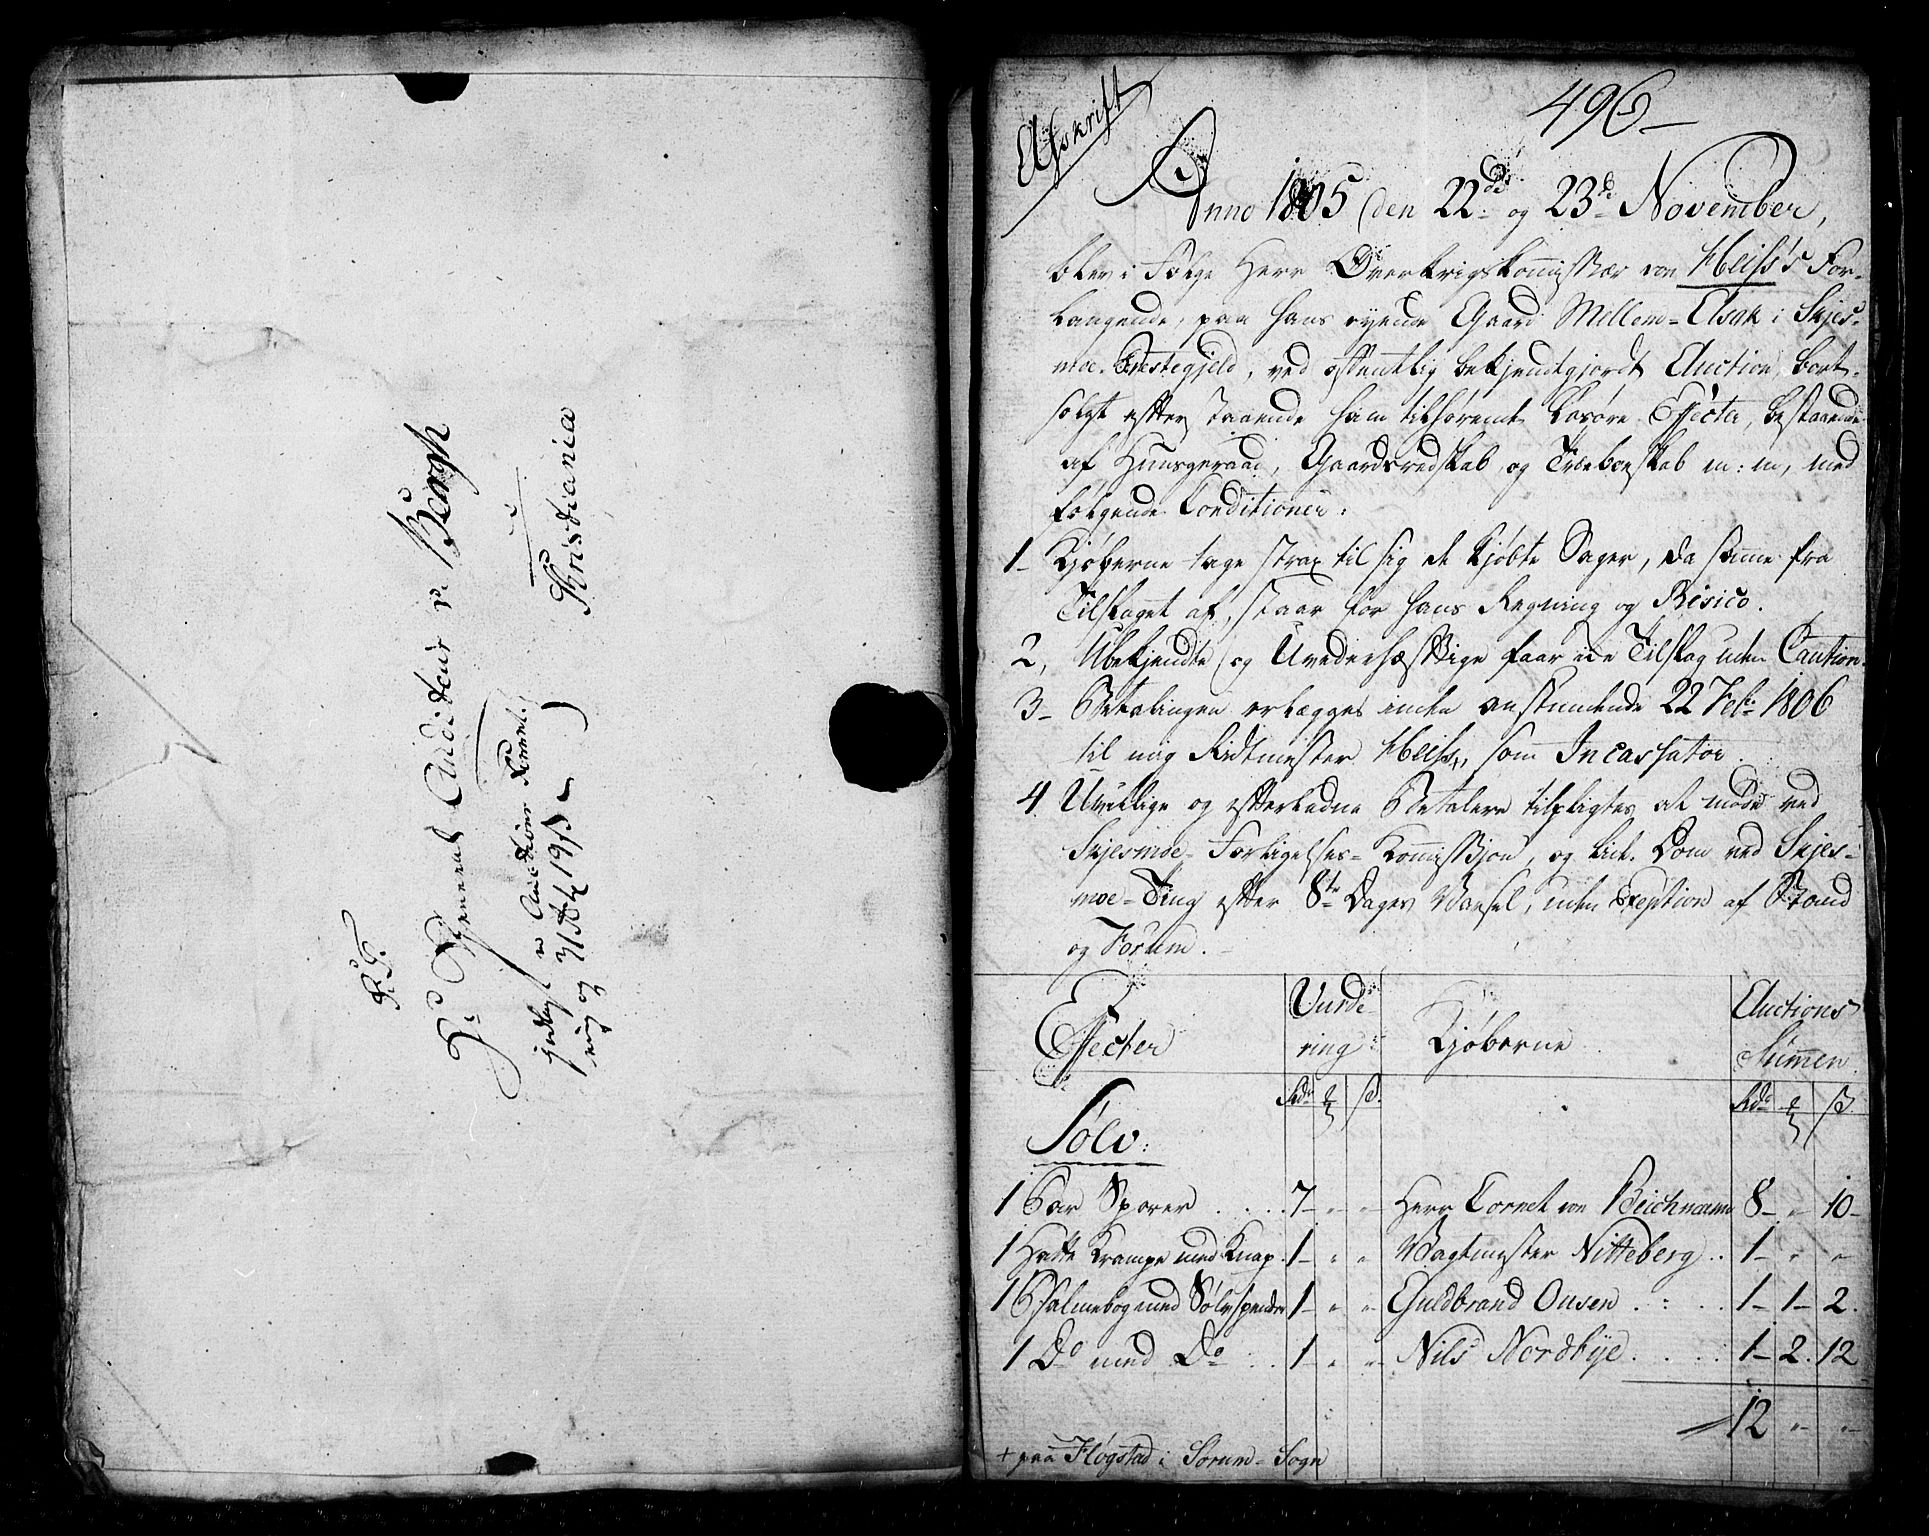 S. T.
Hr General Auditeur v. Bergh
Christiania
indlagt en Auctions Forret.
Afskrift
496
Anno 1805 den 22de og 23de November,
blev i Følge Herr Overkrigskommissær von Heiss's For-
langende, paa hans eyende Gaard Mellem-Asak i Skjes-
moe Præstegjeld, ved offentlig bekjendtgjordt Auction, bort-
solgt efterstaaende ham tilhørende Løsøre Effecter, bestaaende
af Huusgeraad, Gaardsredskab og Træboeskab m: m, med
følgende Conditioner:
1- Kjøberne tage strax til sig de kjøbte Sager, da samme fra
Tilslaget af, staar for hans Regning og Risico.
2, Ubekjendte og Uvederhæftige faar ei Tilslag uden Caution.
3- Betalingen erlægges inden anstundende 22 Feb: 1806
til mig Ridtmester Heiss +, som Incassator.
4 Uvillige og efterladne Betalere tilpligtes at møde ved
Skjesmoe-Forligelses-Kommission, og lide Dom ved Skjes-
moe-Ting efter 8te Dages Varsel, uden Exeption af Stand
og Forum.-
Effecter Vurde-ring Kjøberne Auctions Summen
Rdr ß. Rdr ß.
Sølv:
1 Par Sporer . . . . 7 - " " Herr Cornet von Beichmann 8 - " 10 -
1 Hatte Krampe med Knap. 1 - " " Vagtmester Nitteberg . . 1 - " "
1 Psalmebog med Sølvspender 1 - " " Guldbrand Onsen . : . . 1 - 1 - 2.
1 Do med Do . . 1 - " " Nils Nordbye . . . . 1 - 2. 12
12 " "
+ paa Fløgstad i Sørum-Sogn